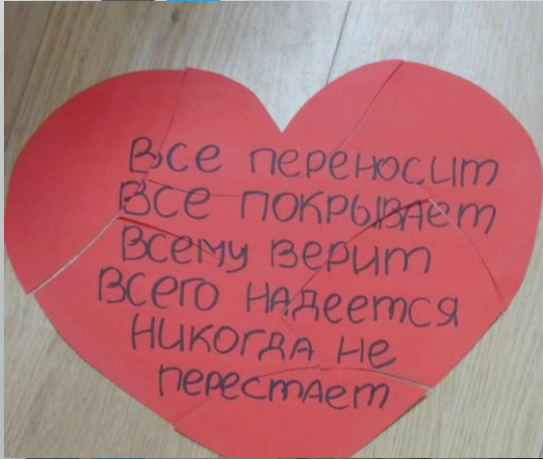 Все переносит
Все покрывает
Всему верит
Всего надеется
Никогда не
перестает